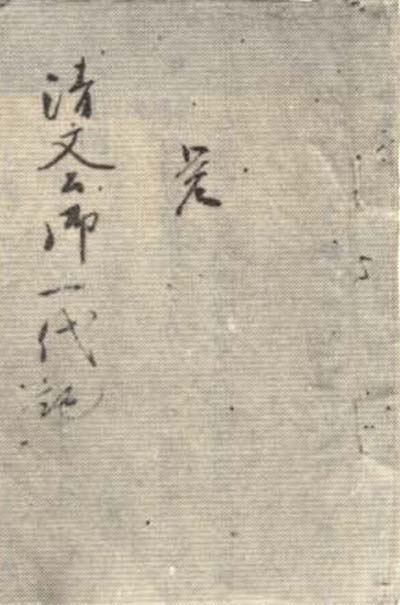 清文公御一代記